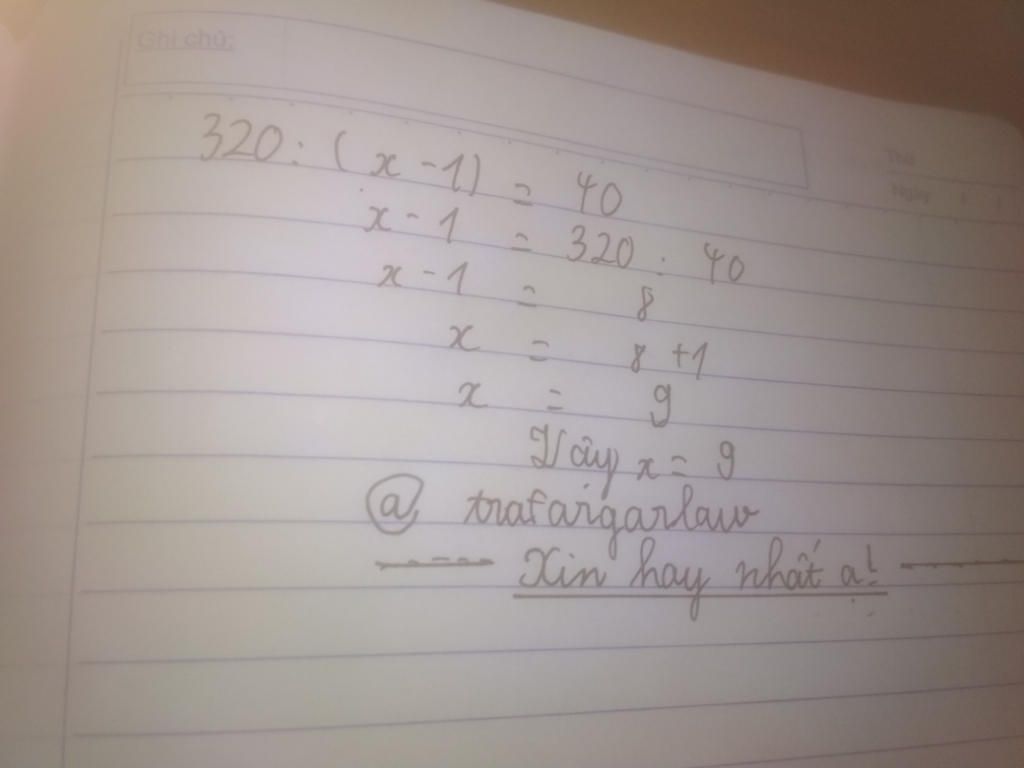 Ghi chú:
Thứ
Ngày / /
320 : ( x - 1) = 40
x - 1 = 320 : 40
x - 1 = 8
x = 8 + 1
x = 9
Vậy x = 9
@ trafargarlaw
----- Xin hay nhất ạ! -----